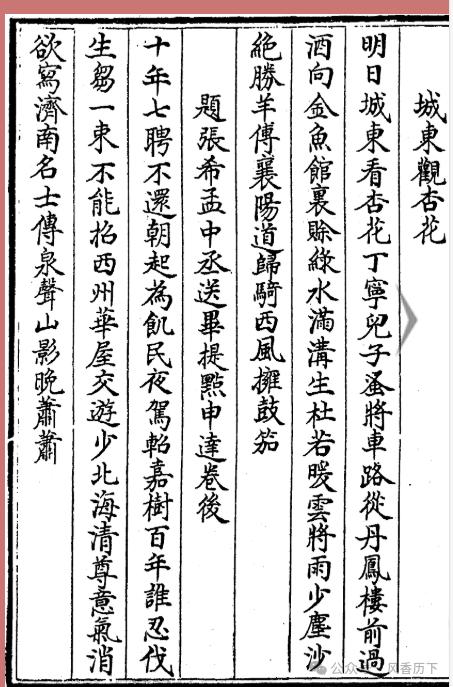 城東觀杏花
明日城東看杏花丁寧兒子蚤將車路從丹鳳樓前過
酒向金魚館裏賒綠水滿溝生杜若暖雲將雨少塵沙
絶勝羊傅襄陽道歸騎西風擁鼓笳
題張希孟中丞送畢提㸃申達卷後
十年七聘不還朝起為飢民夜駕軺嘉樹百年誰忍伐
生芻一束不能招西州華屋交遊少北海清尊意氣消
欲寫濟南名士傳泉聲山影晚蕭蕭
风香历下